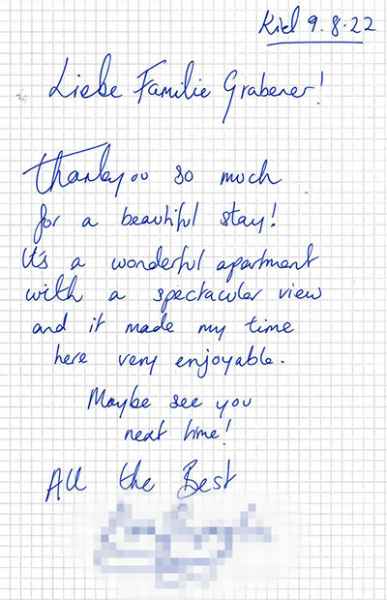 Kiel 9.8.22
Liebe Familie Grabener!
Thankyou so much
for a beautiful stay!
It's a wonderful apartment
with a spectacular view
and it made my time
here very enjoyable.
Maybe see you
next time!
All the Best